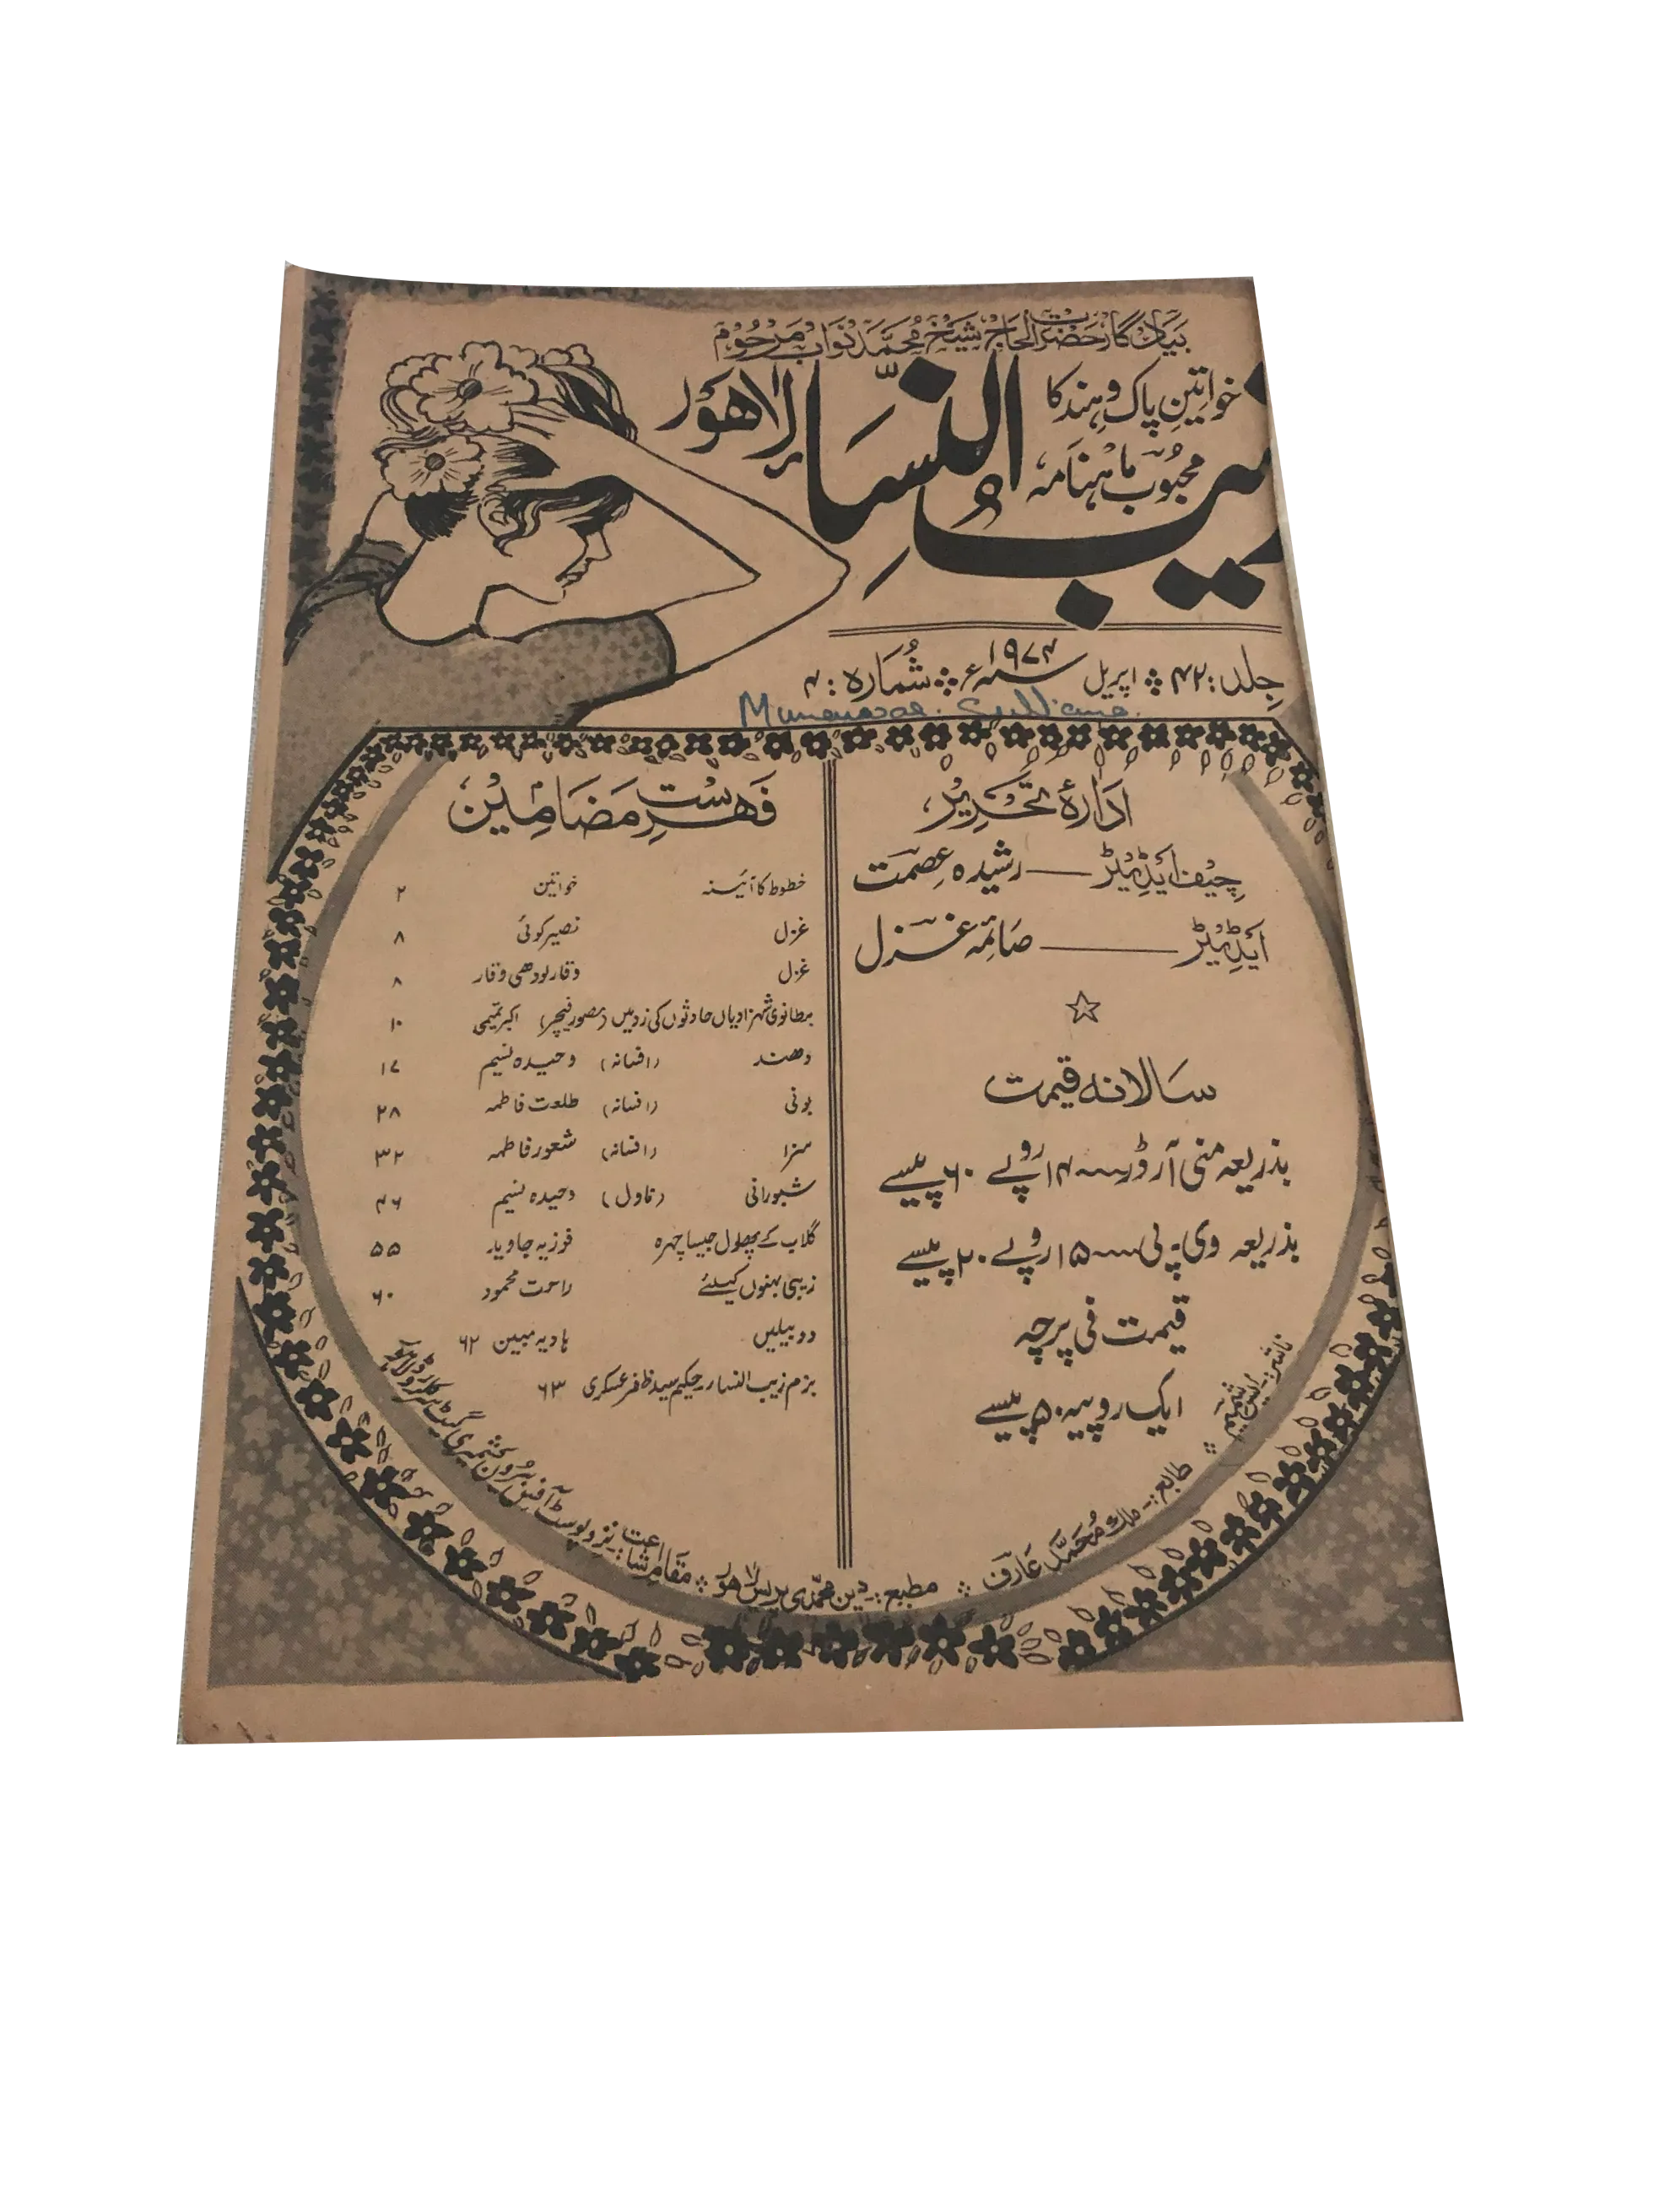 بیادگار حضرت الحاج شیخ محمد نواب مرحوم
خواتینِ پاک وہند کا
محبوب ماہنامہ
زیب النساء لاہور
جلد: ۴۲ اپریل سنہ ۱۹۷۴ء شمارہ: ۴
Munawar Sultana
ادارۂ تحریر
چیف ایڈیٹر — رشیدہ عصمت
ایڈیٹر — صائمہ غزل
سالانہ قیمت
بذریعہ منی آرڈر ۱۴ روپے ۶۰ پیسے
بذریعہ وی۔پی ۱۵ روپے ۲۰ پیسے
قیمت فی پرچہ
ایک روپیہ ۵۰ پیسے
فہرست مضامین
خطوط کا آئینہ خواتین ۲
غزل نصیر کوئی ۸
غزل وقار لودھی وقار ۸
برطانوی شہزادیاں حادثوں کی زد میں (مصور فیچر) اکبر تمیمی ۱۰
دھند (افسانہ) وحیدہ نسیم ۱۷
بونی (افسانہ) طلعت فاطمہ ۲۸
سزا (افسانہ) شعور فاطمہ ۳۲
شبو رانی (ناول) وحیدہ نسیم ۴۶
گلاب کے پھول جیسا چہرہ فوزیہ جاوید ۵۵
زیبی بہنوں کیلئے راحت محمود ۶۰
دو بیلیں ہادیہ مبین ۶۲
بزم زیب النساء۔ حکیم سید ظفر عسکری ۶۳
ناشر:- ایس شمیم ⁘ طابع:- ملک محمد عارف ⁘ مطبع:- دین محمدی پریس لاہور ⁘ مقام اشاعت: نزد پوسٹ آفس بیرون کشمیری گیٹ سرکلر روڈ لاہور